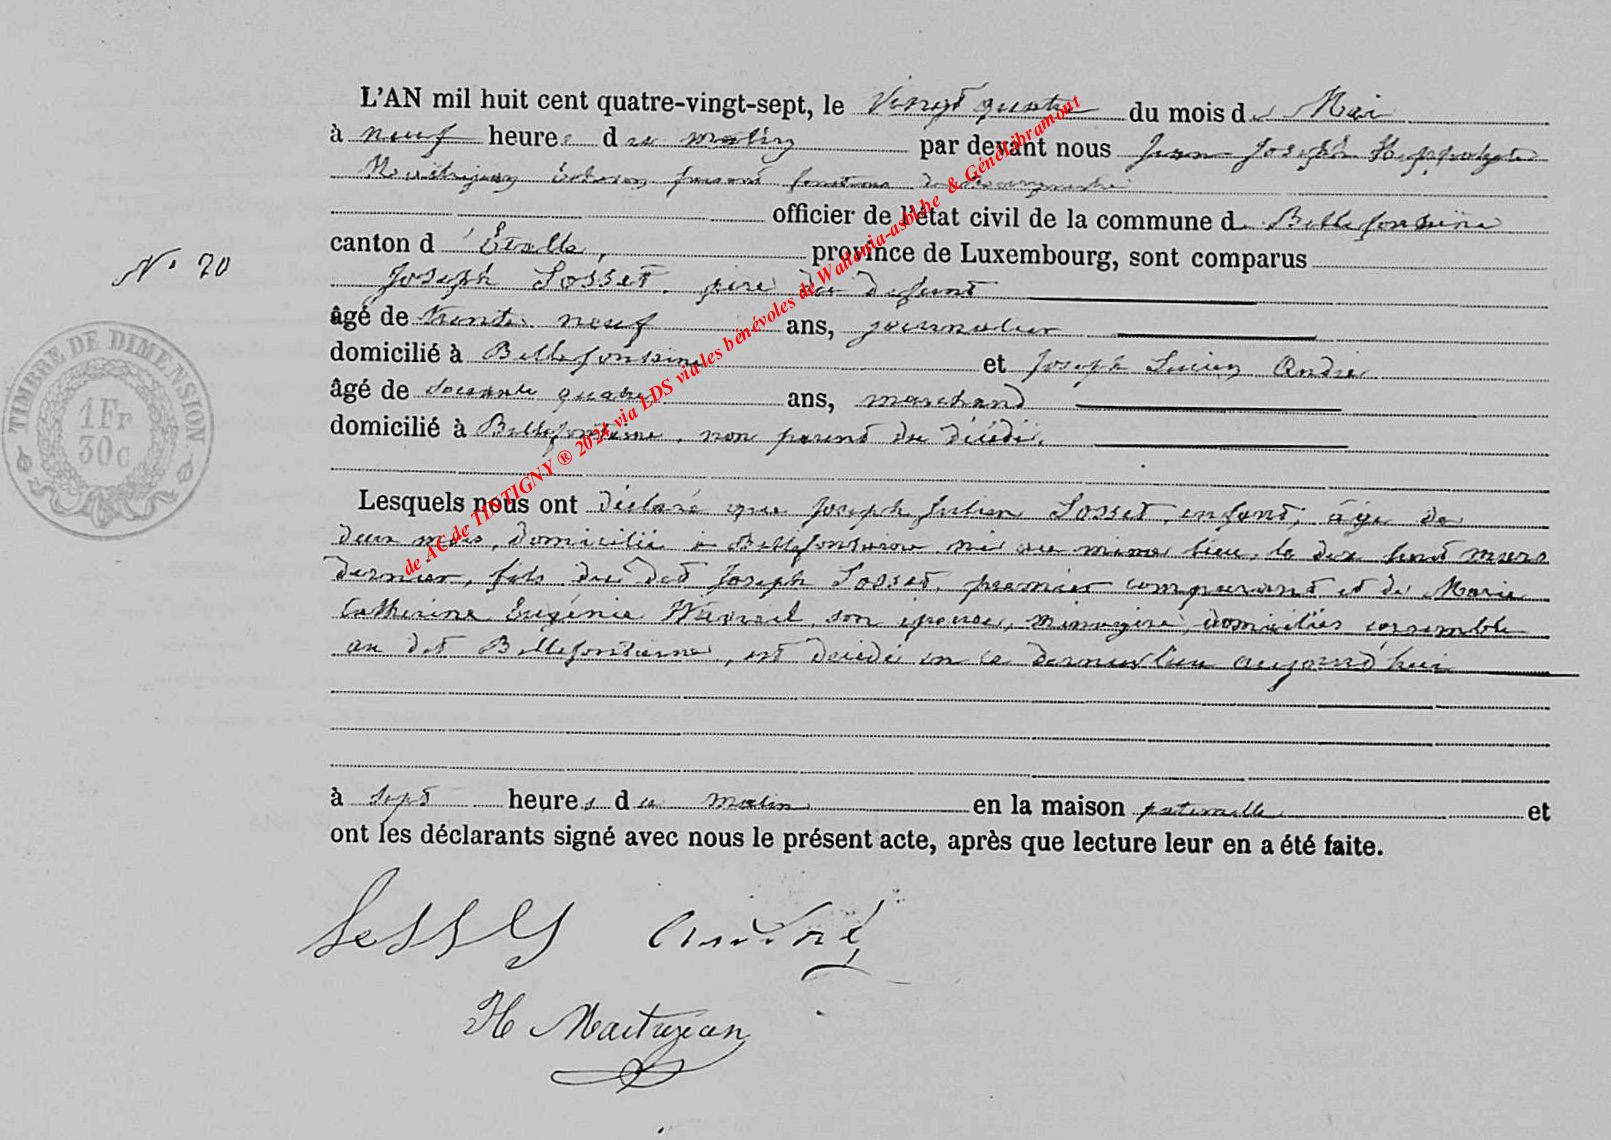 L'AN mil huit cent quatre-vingt-sept, le vingt quatre du mois de Mai
à neuf heures du matin par devant nous Jean Joseph Hippolyte
Maitrejean Echevin faisant fonctions de Bourgmestre
officier de l'état civil de la commune de Bellefontaine
canton d'Etalle, province de Luxembourg, sont comparus
N° 20
Joseph Sosset, père du défunt
âgé de trente neuf ans, journalier
domicilié à Bellefontaine et Joseph Lucien André
âgé de soixante quatre ans, marchand
domicilié à Bellefontaine, non parent du décédé,
Lesquels nous ont déclaré que Joseph Julien Sosset, enfant, âgé de
deux mois, domicilié à Bellefontaine, né au même lieu, le dix huit mars
dernier, fils du dit Joseph Sosset, premier comparant et de Marie
Catherine Eugénie son épouse, ménagère, domiciliés ensemble
au dit Bellefontaine, est décédé en ce dernier lieu aujourd'hui
à sept heures du matin en la maison paternelle et
ont les déclarants signé avec nous le présent acte, après que lecture leur en a été faite.
André
H Maitrejean
TIMBRE DE DIMENSION
1 Fr
30 c
de AC de TINTIGNY ® 2024 via LDS via les bénévoles de Wallonia-asbl.be & Génélibramont